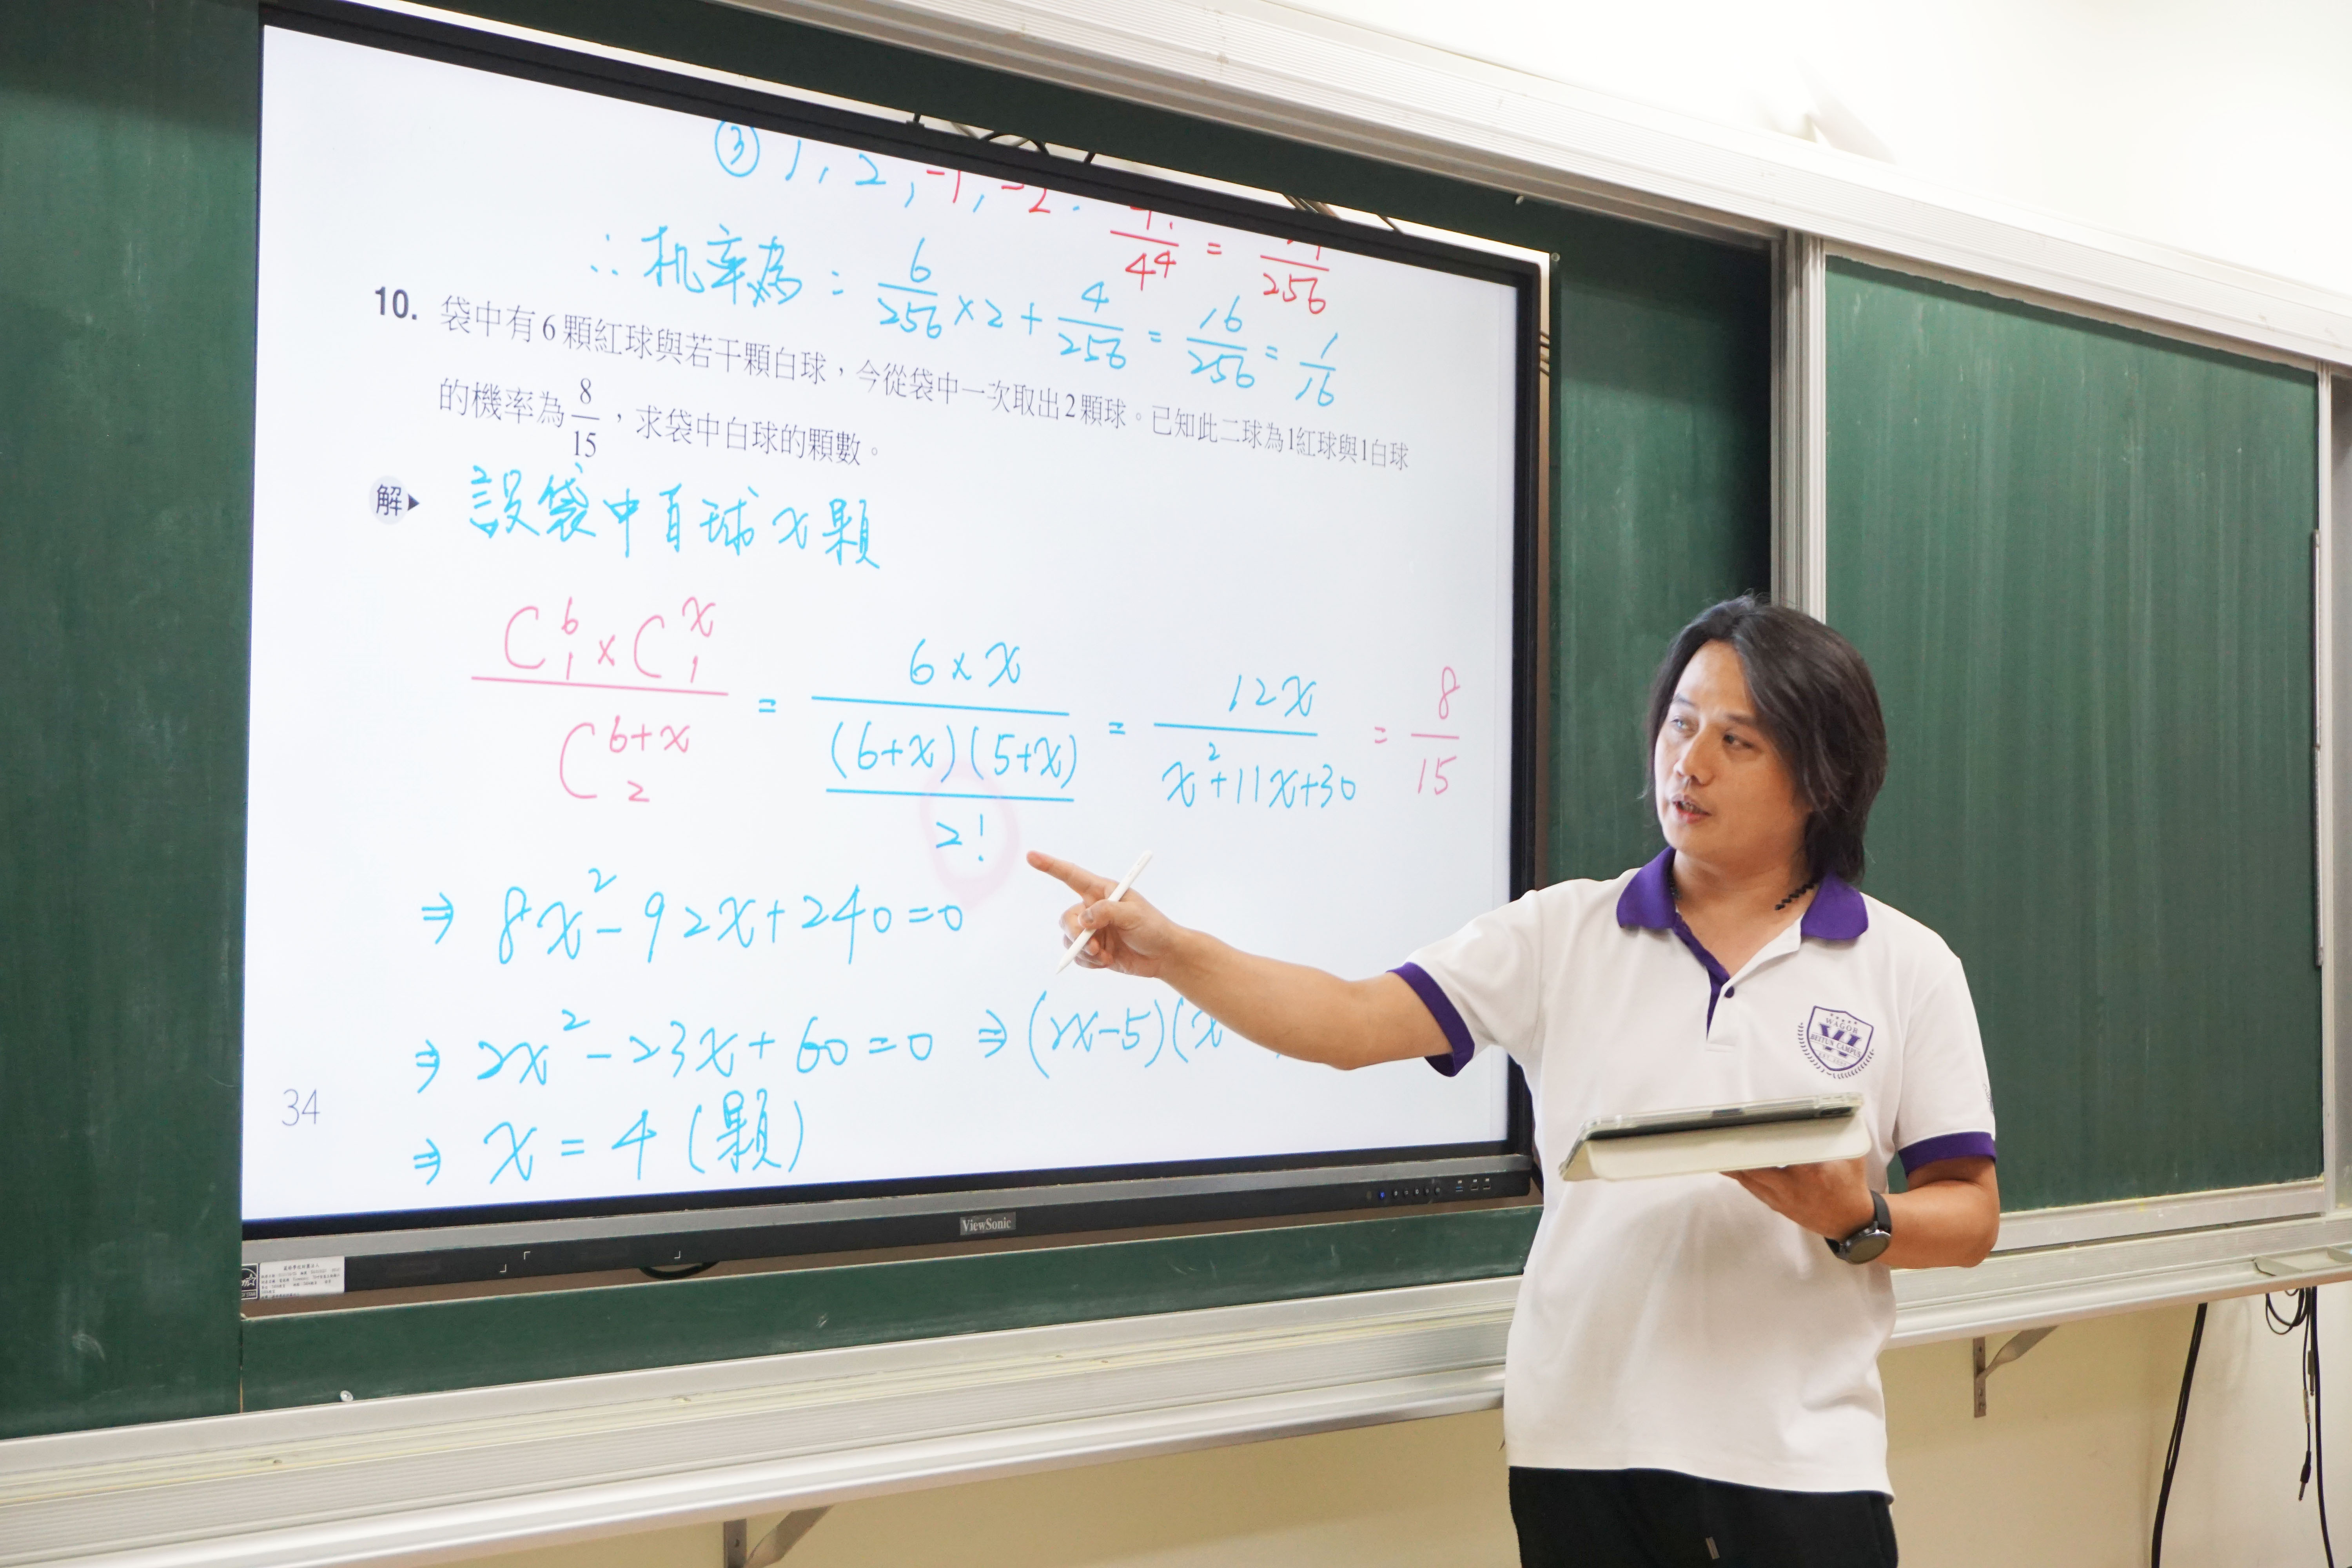 ③ 1, 2, -1, -2. 4!/4⁴ = /256
∴ 机率為: 6/256 × 2 + 4/256 = 16/256 = 1/16
10. 袋中有6顆紅球與若干顆白球，今從袋中一次取出2顆球。已知此二球為1紅球與1白球
的機率為 8/15，求袋中白球的顆數。
解▶ 設袋中白球 x 顆
(C⁶₁ × Cˣ₁)/C⁶⁺ˣ₂ = (6 × x)/((6+x)(5+x)/2!) = 12x/(x²+11x+30) = 8/15
⇒ 8x² - 92x + 240 = 0
⇒ 2x² - 23x + 60 = 0 ⇒ (2x-5)(x
⇒ x = 4 (顆)
34
ViewSonic
WAGOR
BEITUN CAMPUS